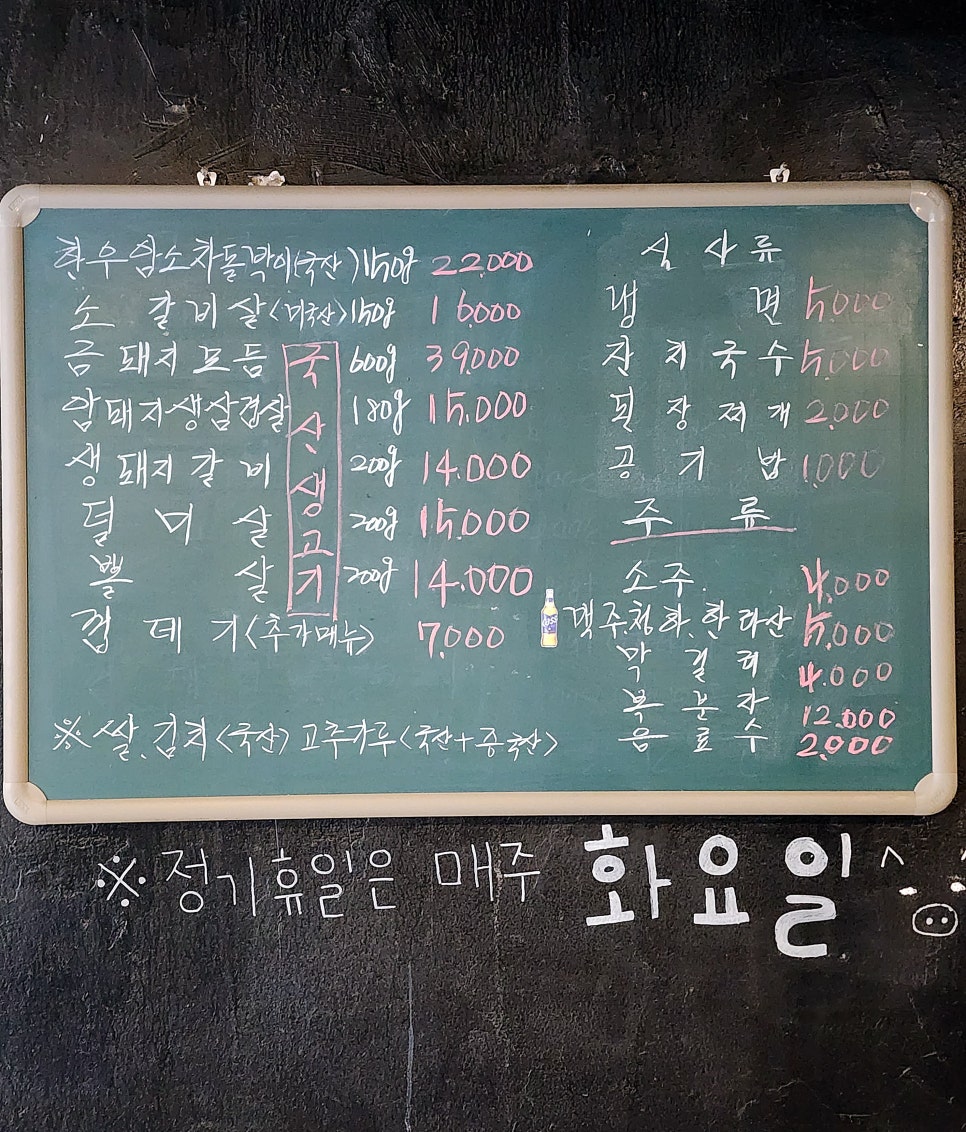 한우암소차돌박이(국산) 150g 22.000
소 갈비살<미국산>150g 16.000
금돼지모듬 600g 39.000
암돼지생삼겹살 180g 15.000
생돼지갈비 200g 14.000
덜미살 200g 15.000
뽈살 200g 14.000
국산생고기
껍데기<추가메뉴> 7.000
※ 쌀.김치<국산> 고추가루<국산+중국산>
식사류
냉면 5.000
잔치국수 5.000
된장찌개 2.000
공기밥 1.000
주류
소주 4.000
맥주.청하.한라산 5.000
막걸리 4.000
복분자 12.000
음료수 2.000
※ 정기휴일은 매주 화요일